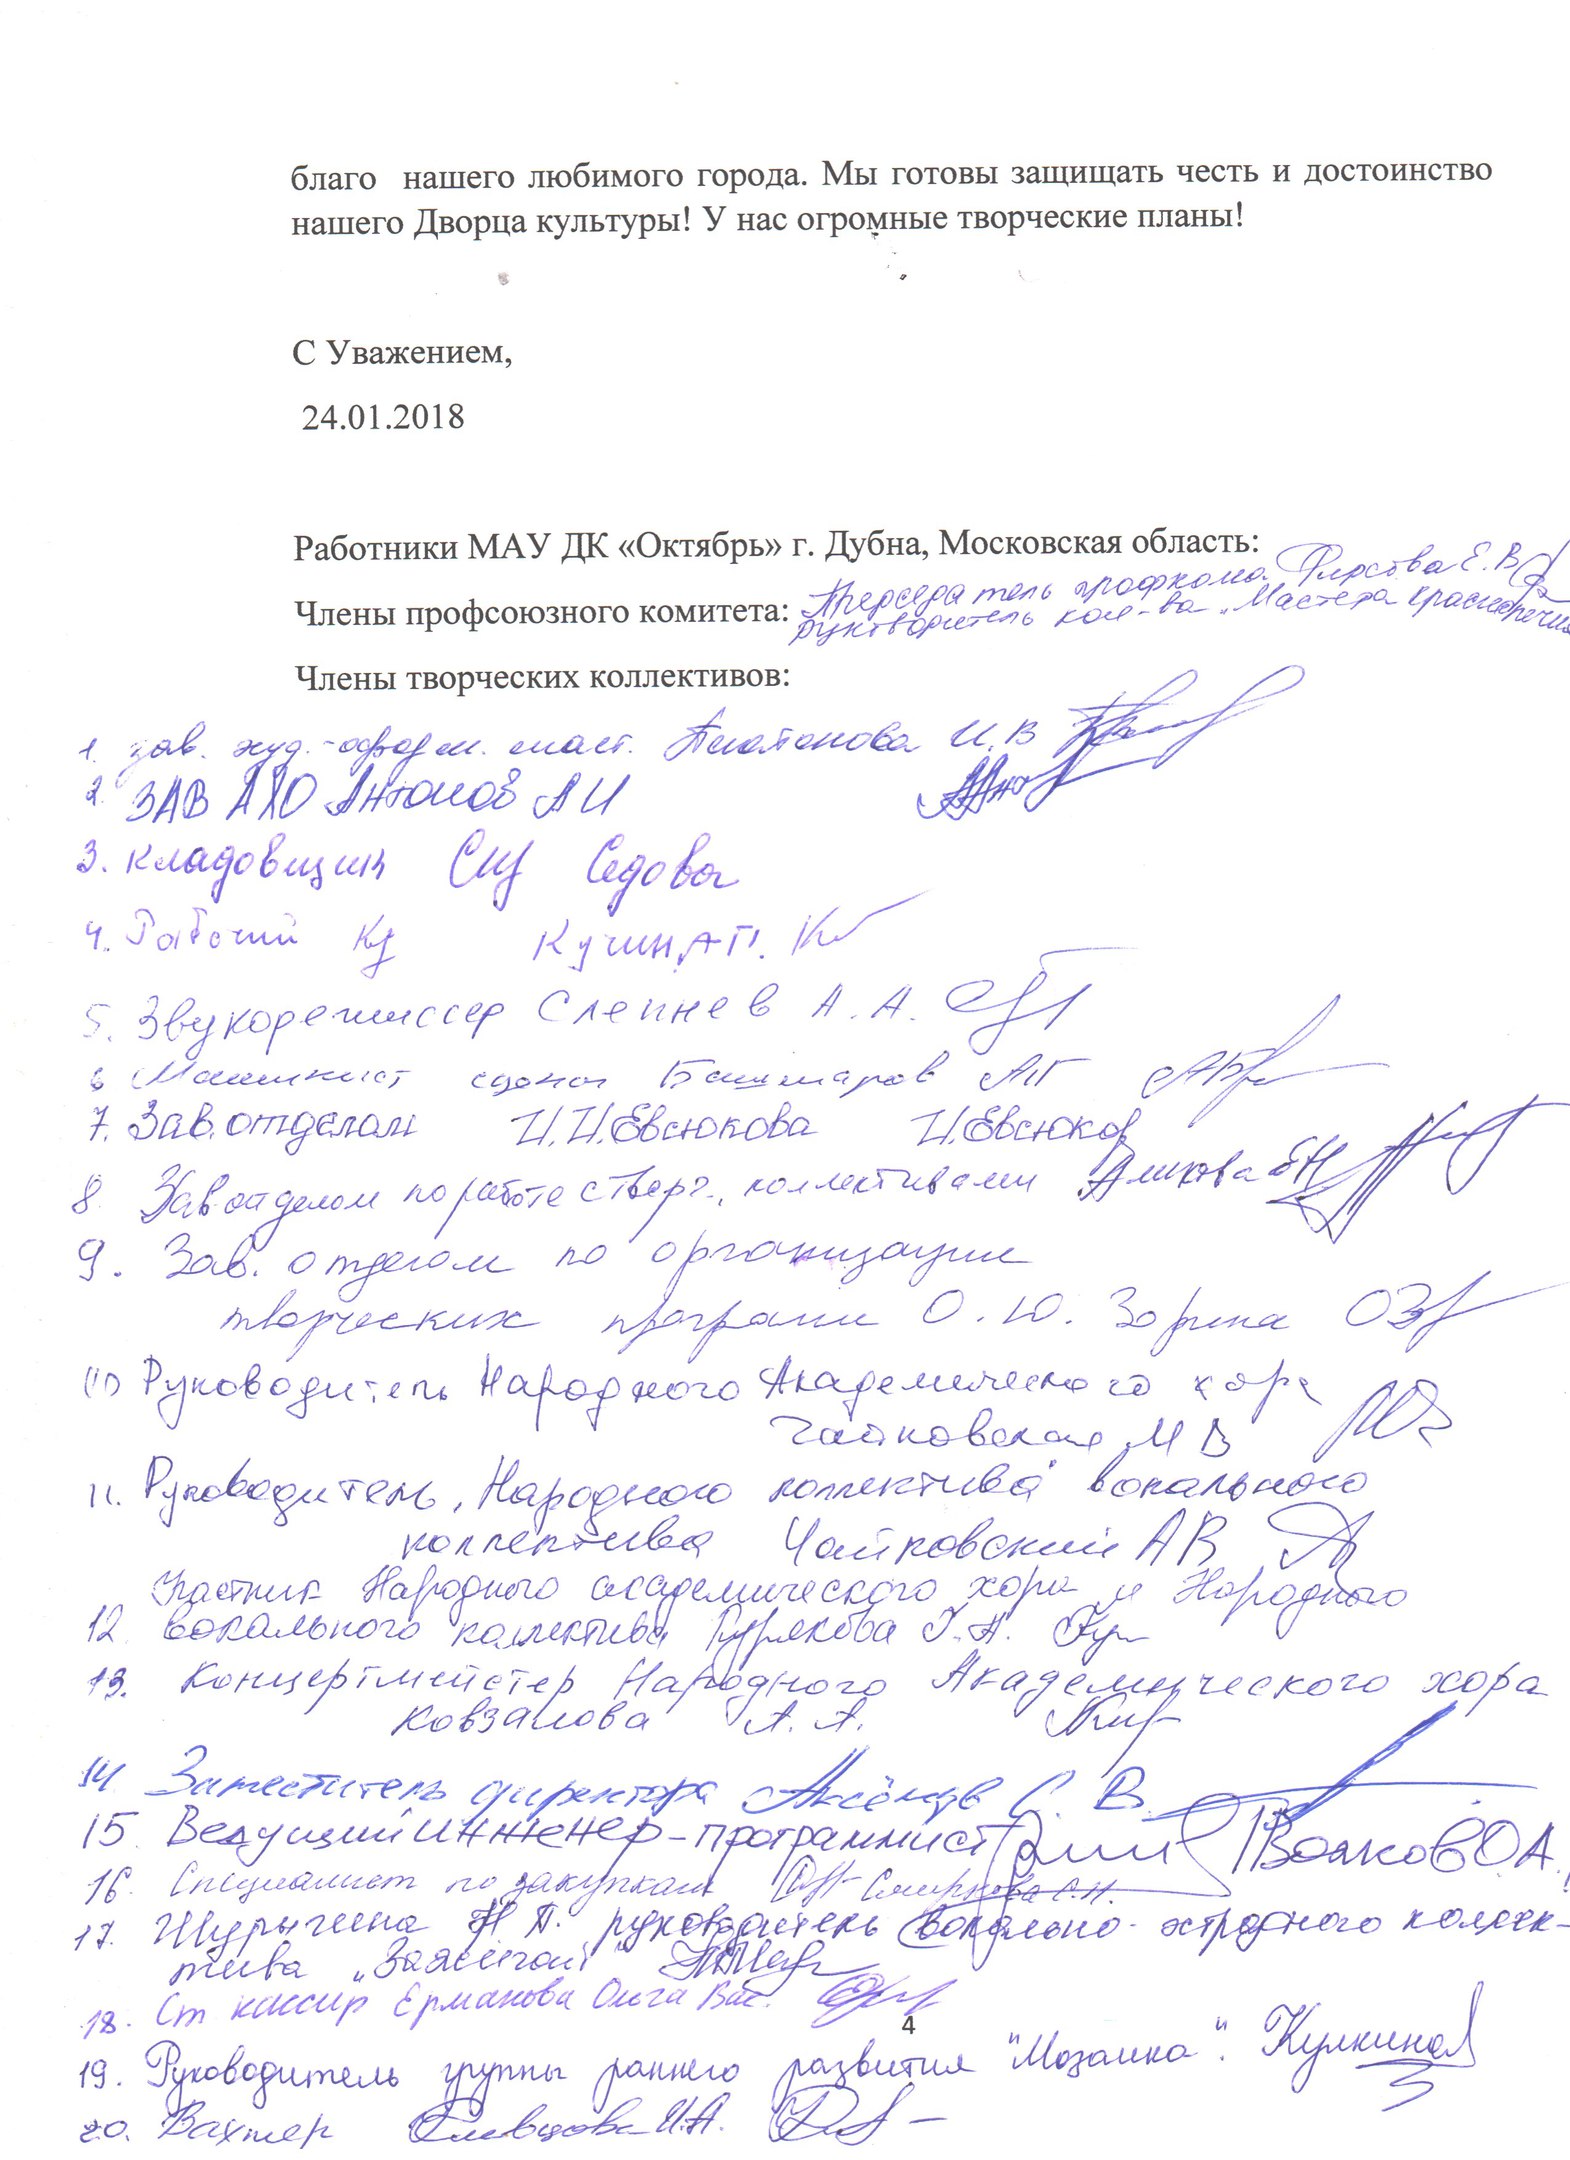 благо нашего любимого города. Мы готовы защищать честь и достоинство
нашего Дворца культуры! У нас огромные творческие планы!
С Уважением,
24.01.2018
Работники МАУ ДК «Октябрь» г. Дубна, Московская область:
Председатель профкома Фирсова Е.В.
Члены профсоюзного комитета:
руководитель кол-ва „Мастера красноречия
Члены творческих коллективов:
1. зав. худ.-оформ. маст. Платонова И.В
2. ЗАВ АХО Антонов АИ
3. кладовщик Седова
4. Рабочий Кучин А П.
5. Звукорежиссер Слепнев А. А.
6 Машинист сцены Башмаров АП
7. Зав. отделом И.И. Евсюкова И.Евсюков
8. Зав отделом по работе с творч. коллективами
9. Зав. отделом по организации
творческих программ О. Ю. Зорина
10 Руководитель Народного Академического хора
Чайковская М В
11. Руководитель Народного коллектива вокального
коллектива Чайковский АВ
Участник Народного академического хора и Народного
12. вокального коллектива
13. Концертмейстер Народного Академического хора
Ковзалова А. А.
14. Заместитель директора Аксёнов С. В.
15 Ведущий инженер-программист Волков О.А.
16. Специалист по закупкам Смирнова
17. Шурыгина руководитель вокально-эстрадного коллек-
тива „Зажигай"
18. Ст кассир Ермакова Ольга Вас.
4
19. Руководитель группы раннего развития "Мозаика".
20. Вахтер И.А.